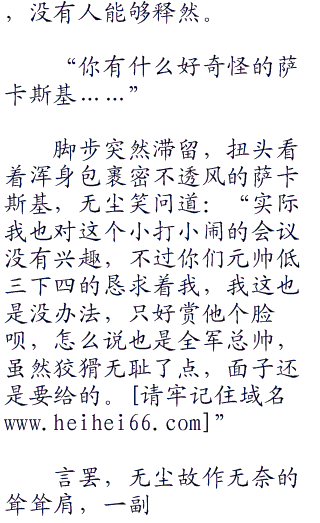 ，没有人能够释然。
“你有什么好奇怪的萨
卡斯基……”
脚步突然滞留，扭头看
着浑身包裹密不透风的萨卡
斯基，无尘笑问道：“实际
我也对这个小打小闹的会议
没有兴趣，不过你们元帅低
三下四的恳求着我，我这也
是没办法，只好赏他个脸
呗，怎么说也是全军总帅，
虽然狡猾无耻了点，面子还
是要给的。[请牢记住域名
www.heihei66.com]”
言罢，无尘故作无奈的
耸耸肩，一副